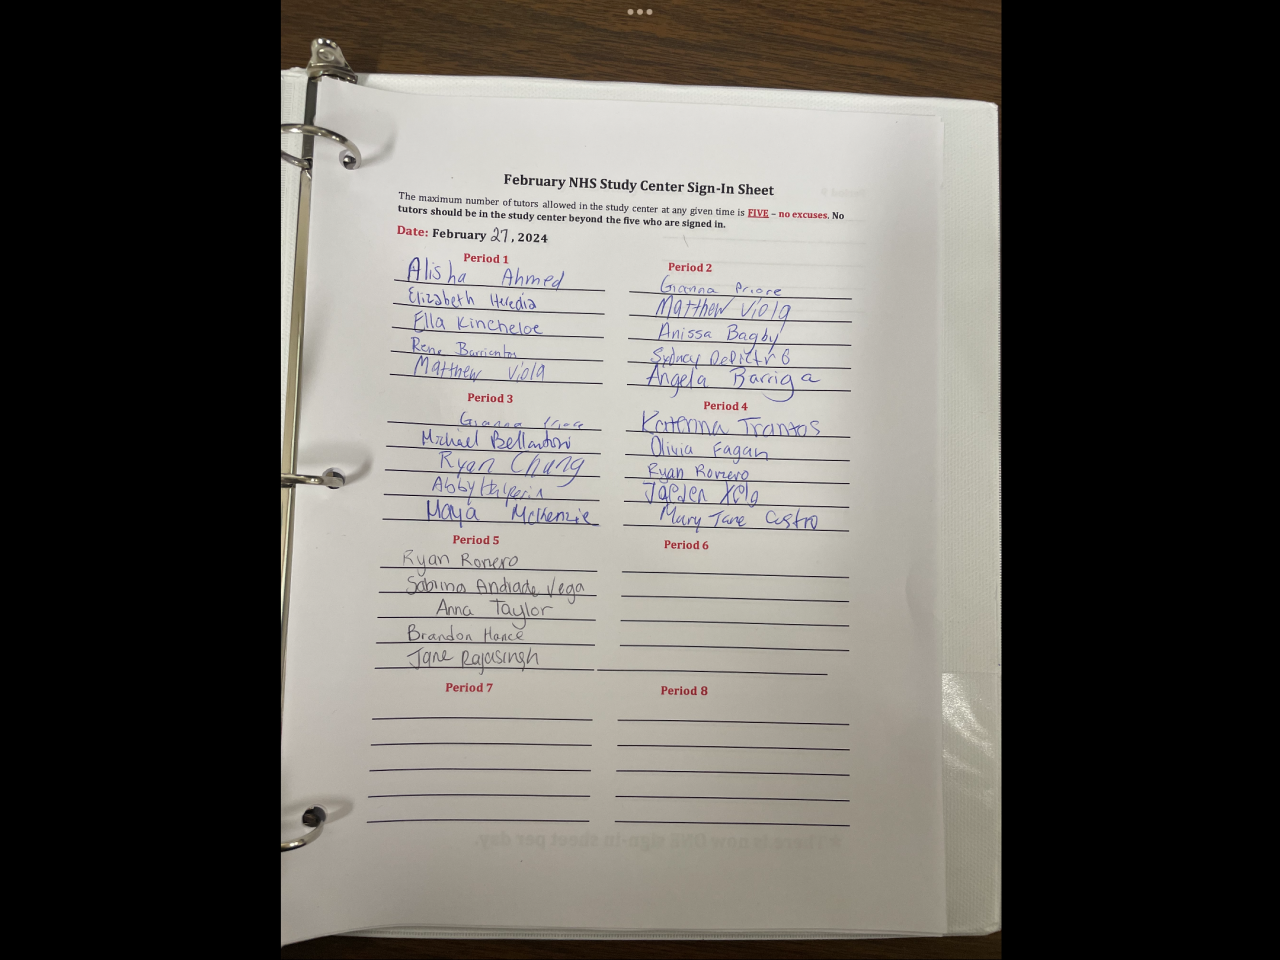 February NHS Study Center Sign-In Sheet
The maximum number of tutors allowed in the study center at any given time is FIVE – no excuses. No
tutors should be in the study center beyond the five who are signed in.
Date: February 27, 2024
Period 1
Alisha Ahmed
Elizabeth Heredia
Ella Kincheloe
Rene Barrientos
Matthew Viola
Period 2
Gianna Priore
Matthew Viola
Anissa Bagby
Sydney
Angela Barriga
Period 3
Gianna Priore
Michael Bellantoni
Ryan Chung
Abby Halperin
Maya McKenzie
Period 4
Katerina Trantos
Olivia Fagan
Ryan Romero
Jaeden
Mary Jane Castro
Period 5
Ryan Romero
Sabrina Andrade Vega
Anna Taylor
Brandon Hance
Jane Rajasingh
Period 6
Period 7
Period 8